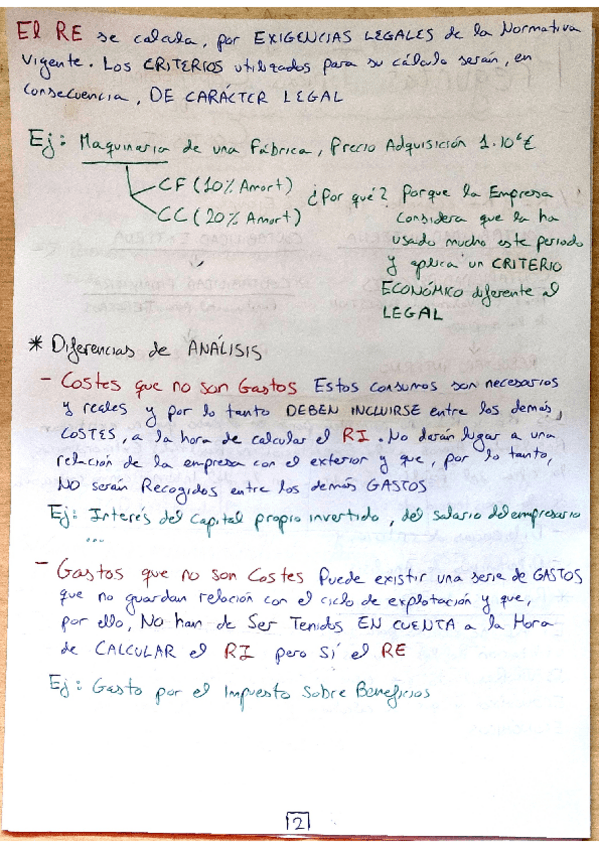 El RE se calcula, por EXIGENCIAS LEGALES de la Normativa
Vigente. Los CRITERIOS utilizados para su cálculo serán, en
consecuencia, DE CARÁCTER LEGAL
Ej: Maquinaria de una Fábrica, Precio Adquisición 1·10⁶€
CF (10% Amort)
CC (20% Amort)
¿Por qué? Porque la Empresa
considera que la ha
usado mucho este periodo
y aplica un CRITERIO
ECONÓMICO diferente al
LEGAL
* Diferencias de ANÁLISIS
- Costes que no son Gastos Estos consumos son necesarios
y reales y por lo tanto DEBEN INCLUIRSE entre los demás,
COSTES, a la hora de calcular el RI. No darán lugar a una
relación de la empresa con el exterior y que, por lo tanto,
NO serán Recogidos entre los demás GASTOS
Ej: Interés del Capital propio invertido, del salario del empresario
...
- Gastos que no son Costes Puede existir una serie de GASTOS
que no guardan relación con el ciclo de explotación y que,
por ello, NO han de Ser Tenidos EN CUENTA a la Hora
de CALCULAR el RI pero SÍ el RE
Ej: Gasto por el Impuesto Sobre Beneficios
2